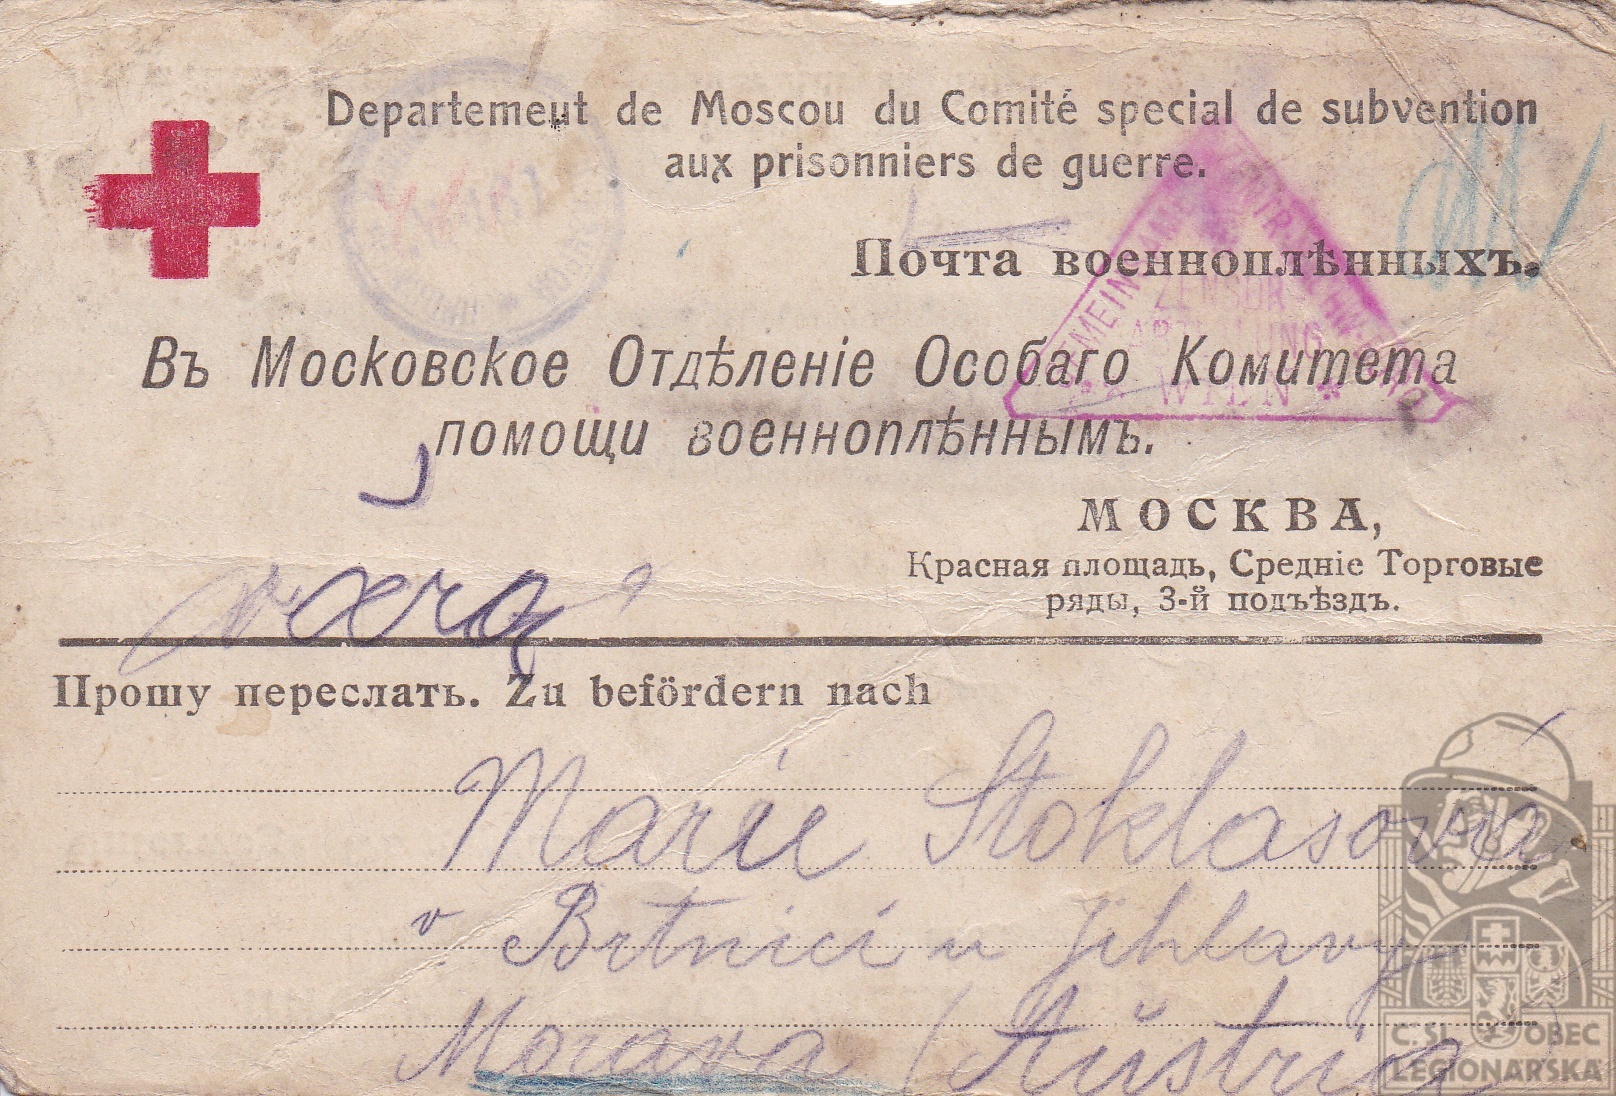 Departemeut de Moscou du Comité special de subvention
aux prisonniers de guerre.
Почта военноплѣнныхъ.
ZENSUR
ABTEILUNG
WIEN
Въ Московское Отдѣленіе Особаго Комитета
помощи военноплѣннымъ.
МОСКВА,
Красная площадь, Средніе Торговые
ряды, 3-й подъѣздъ.
Прошу переслать. Zu befördern nach
Marie Stoklasová
v Brtnici u Jihlavy
Morava (Austria)
Č. SL. OBEC
LEGIONÁŘSKÁ